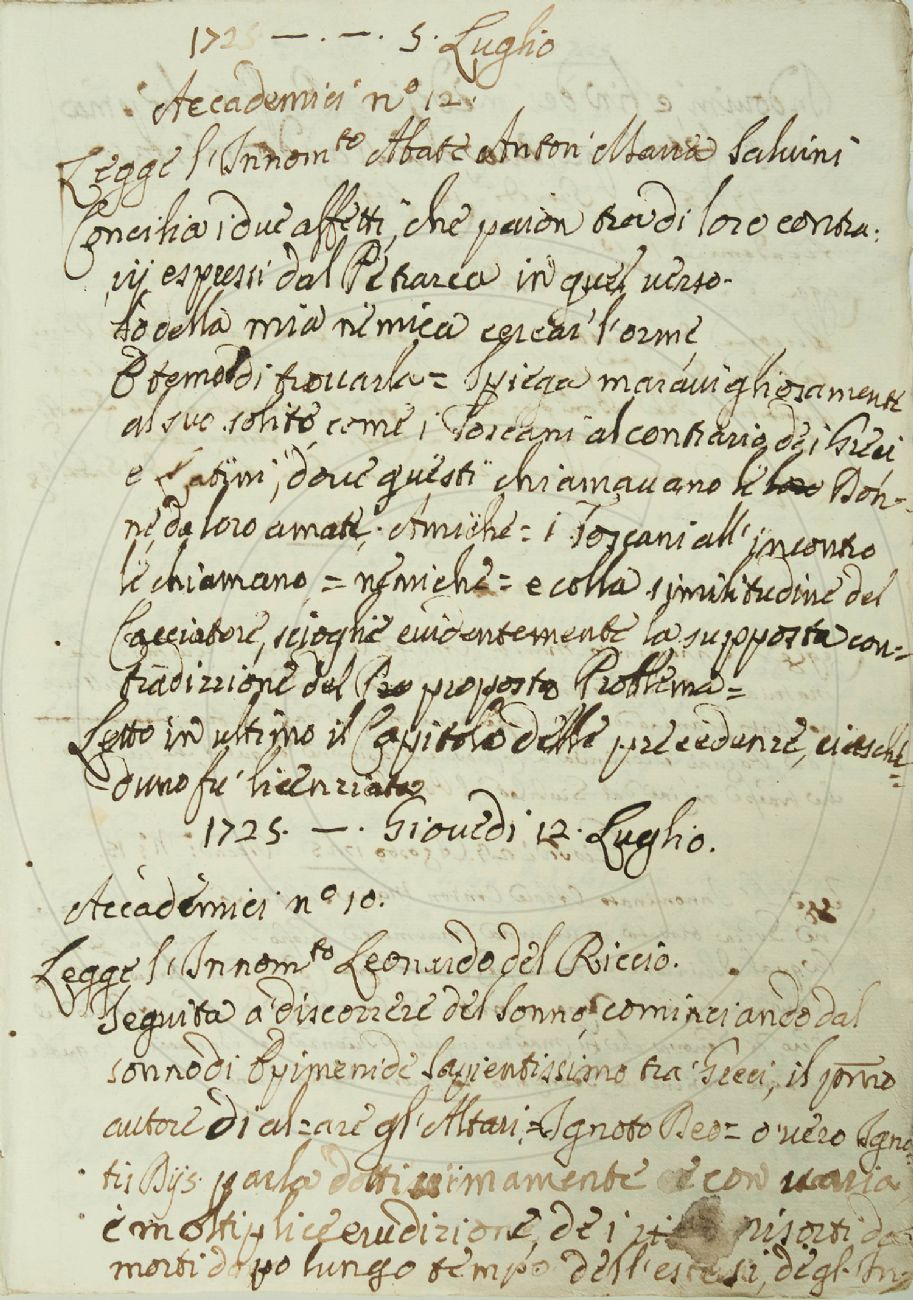 1725 — . — . 5. Luglio
Accademici n.º 12.
Legge l'Innom.to Abate Anton Maria Salvini
Concilia i due affetti, che paion tra di loro contra:
rij espressi dal Petrarca in quel verso.
Io della mia nemica cercar l'orme
E temo di trovarla = Spiega maravigliosamente
al suo solito, come i Toscani al contrario dei Greci
e Latini, dove questi chiamavano le loro Don=
ne, da loro amate, Amiche = i Toscani all'incontro
le chiamano = nemiche = e colla similitudine del
Cacciatore, scioglie evidentemente la supposta con=
tradizzione del Pro proposto Problema =
Letto in ultimo il Capitolo delle precedenze, ciasche=
duno fu' licenziato
1725. — . Giovedi 12. Luglio.
Accademici n.º 10.
Legge l'Innom.to Leonardo del Riccio.
Seguita a' discorrere del sonno, cominciando dal
sonno di Epimenide Sapientissimo tra' Greci, il primo
autore di al=are gl'Altari = Ignoto Deo = overo Igno=
tis Dijs. parla dottissimamente e con varia
e moltiplice erudizione, de i risorti da
morti dopo lungo tempo dell'estasi, degl'In=